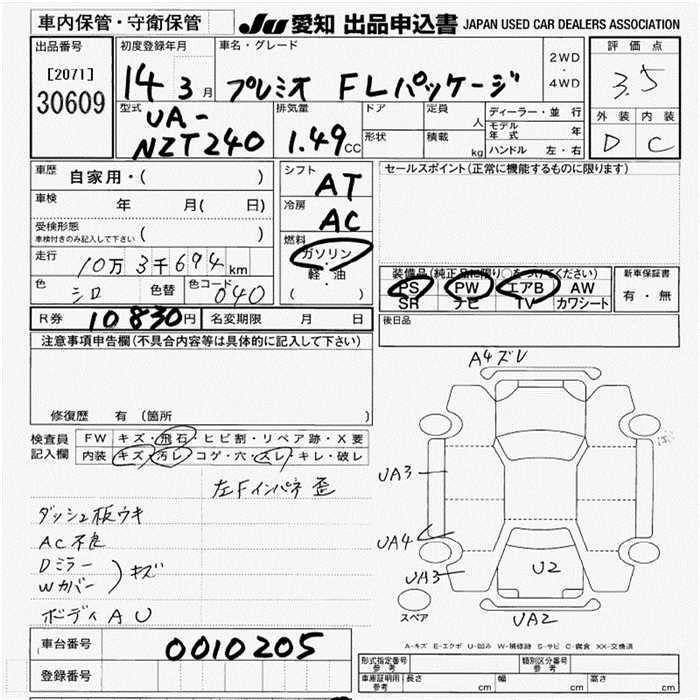 車内保管・守衛保管
JU 愛知 出品申込書 JAPAN USED CAR DEALERS ASSOCIATION
出品番号
[2071]
30609
初度登録年月
14 3月
車名・グレード
プレミオ FLパッケージ
2WD
・
4WD
評価点
3.5
外装 内装
D C
型式
UA-
NZT240
排気量
1.49cc
ドア
定員
人
形状
積載
kg
ディーラー・並行
モデル年式 年
ハンドル 左・右
車歴
自家用・( )
車検
年 月( 日)
受検形態
車検付きのみ記入して下さい ( )
走行
10万3千694km
色
シロ
色替
色コード
040
シフト
AT
冷房
AC
燃料
ガソリン
・
軽・油
( )
セールスポイント(正常に機能するものに限ります)
装備品(純正品に限り○をつけてください)
PS PW エアB AW
SR ナビ TV カワシート
新車保証書
有・無
R券 10830円
名変期限 月 日
後日品
注意事項申告欄(不具合内容等は具体的に記入して下さい)
修復歴 有(箇所 )
検査員
記入欄
FW キズ・飛石・ヒビ割・リペア跡・X要
内装 キズ・汚レ・コゲ・穴・スレ・キレ・破レ
左Fインパネ歪
ダッシュ板ウキ
AC不良
Dミラー
Wカバー
) キズ
ボディAU
A4ズレ
UA3
UA4
UA3
U2
UA2
スペア
A-キズ E-エクボ U-凹み W-補修跡 S-サビ C-腐食 XX-交換済
車台番号
0010205
登録番号
形式指定番号
参考
類別区分番号
参考
車庫証明用
参考
長さ cm
幅 cm
高さ cm